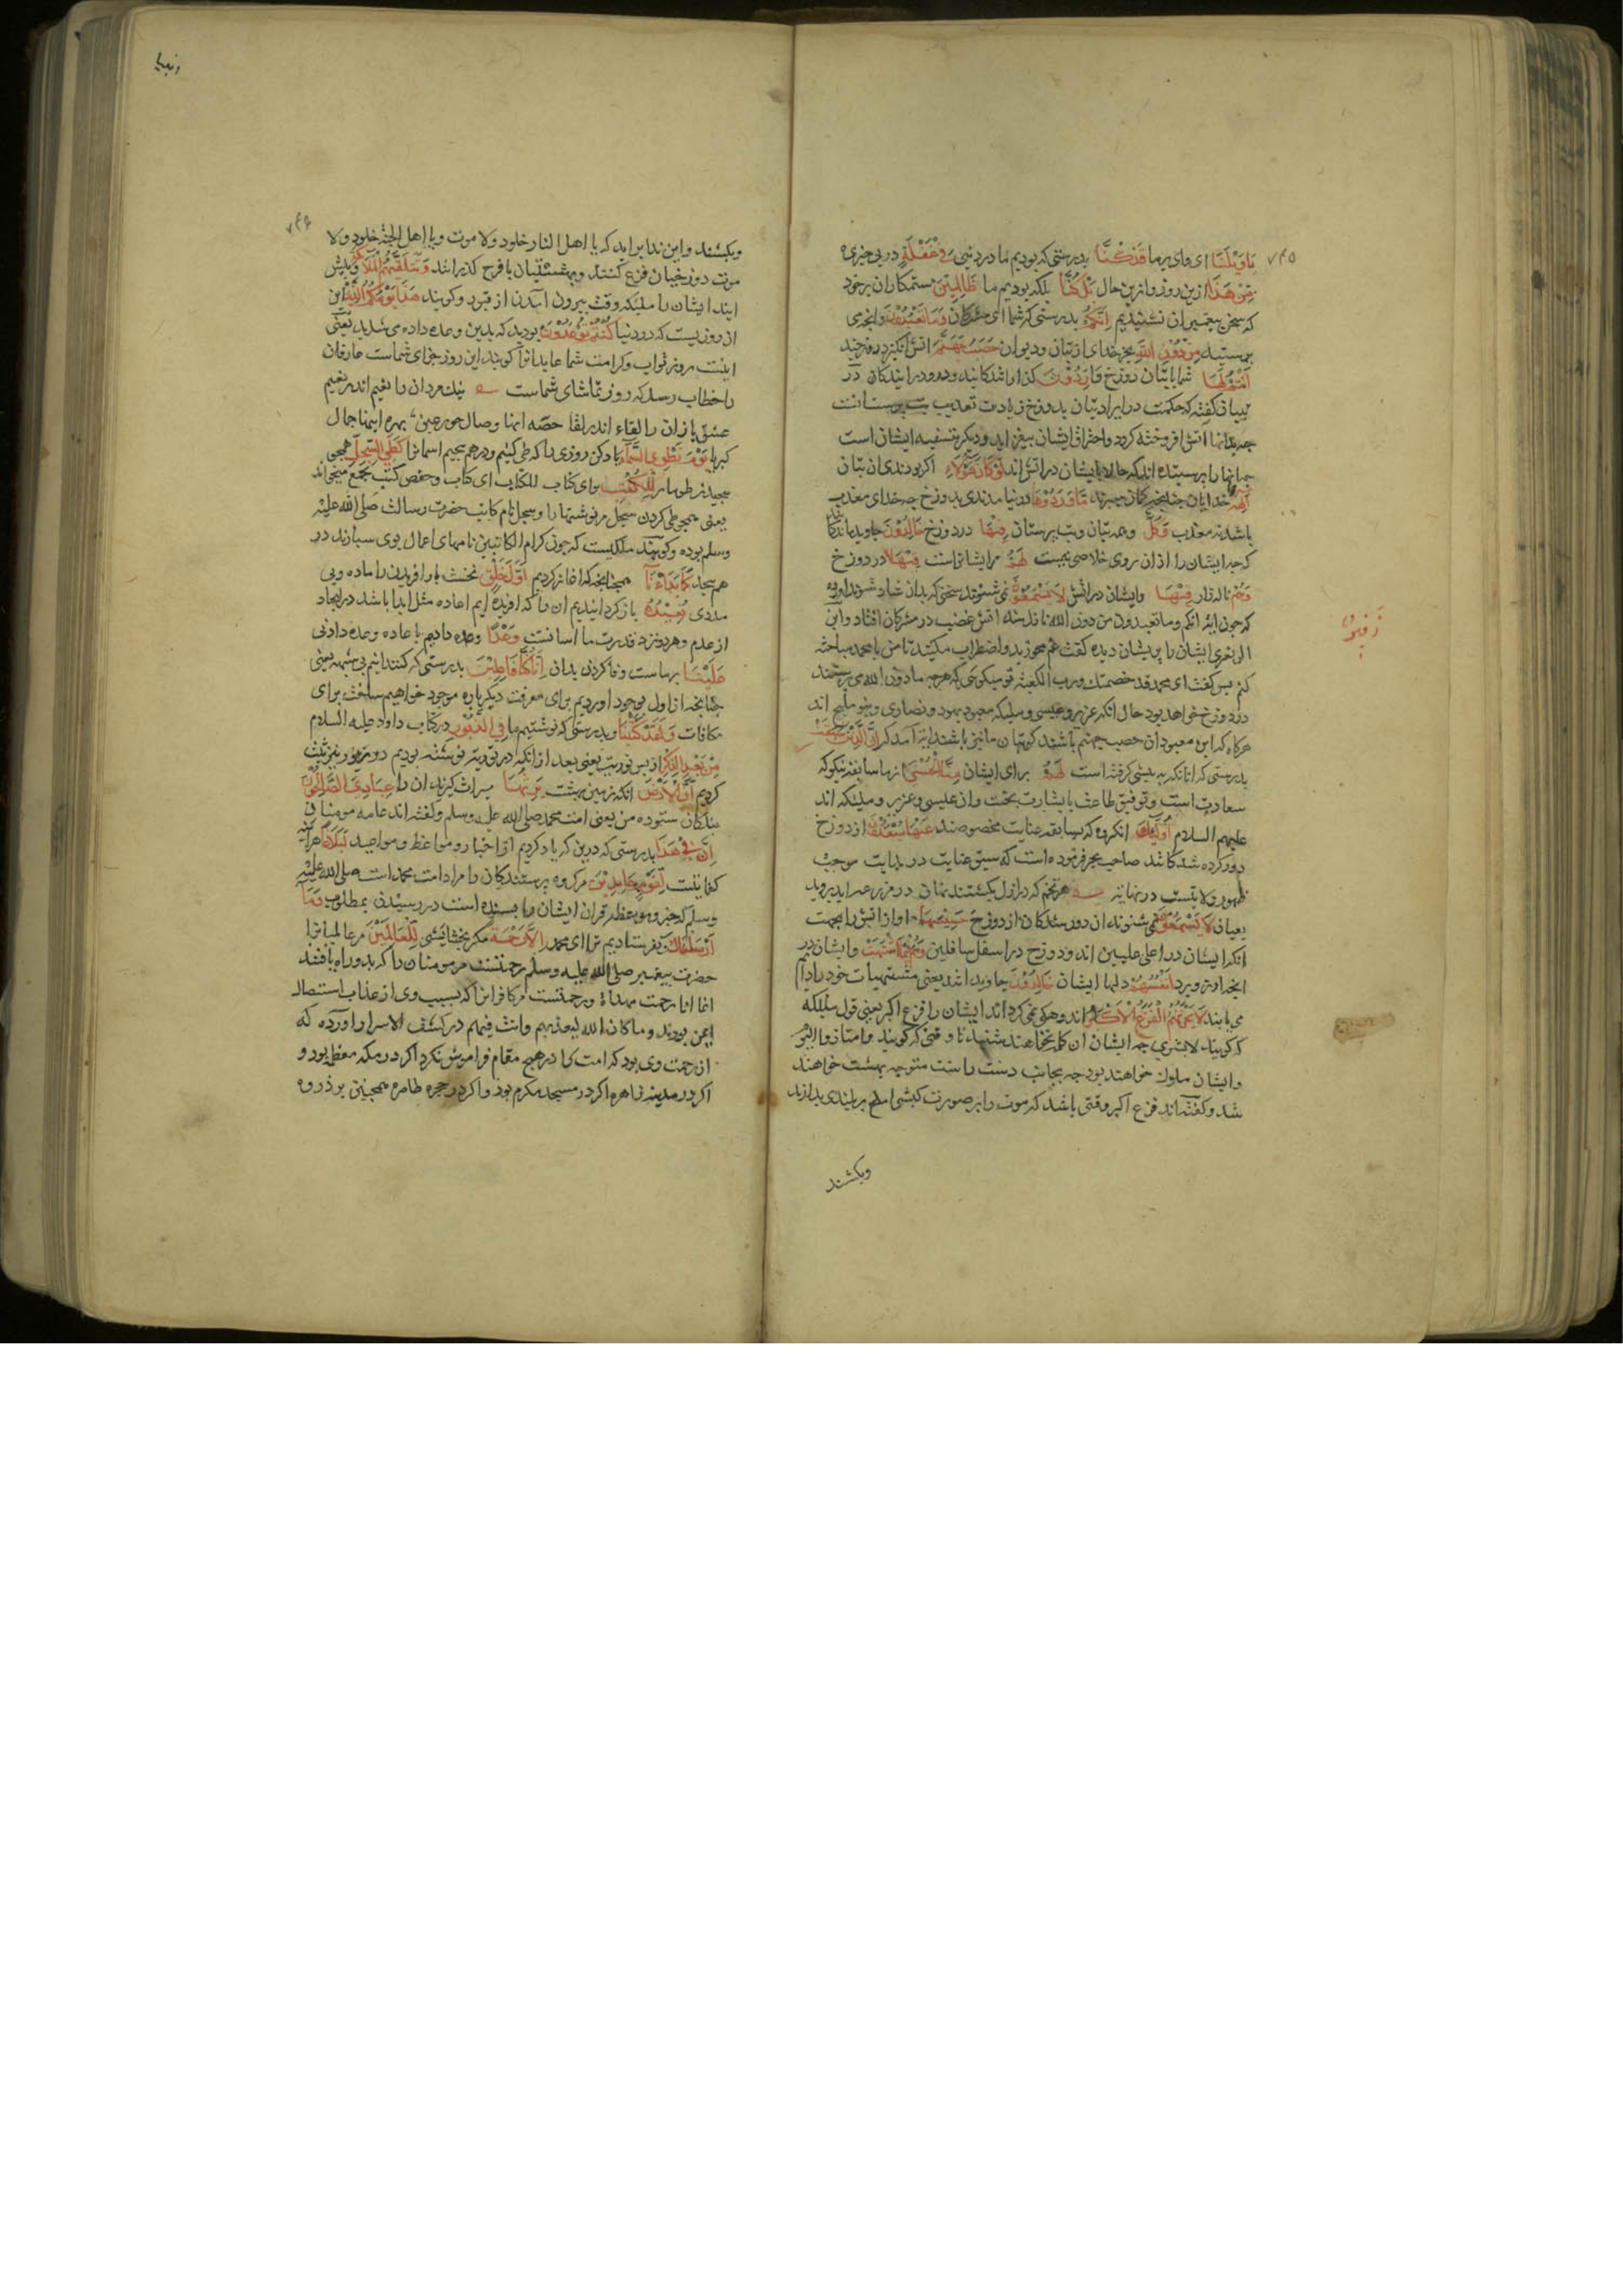 ۷۴۵
یا ویلنا ای وای بر ما قد کنا بدرستی که بودیم ما در دنیی فی غفلة در بی خبری
من هذا ازین روز و ازین حال بل کنا بلکه بودیم ما ظالمین ستمکاران بر خود
که سخن پیغمبران نشنیدیم انکم بدرستی که شما ای مشرکان وما تعبدون وانچه می
پرستید من دون الله بجز خدای از بتان و دیوان حصب جهنم اتش انکیز دوزخند
انتم لها شما با بتان دوزخ را واردون کذر شدکانید و درو درایندکان در
تبیان کفته که حکمت در ایراد بتان بدوزخ زیادت تعذیب بت پرستانست
چه بدانها اتش افروخته کردد واحتراق ایشان بیفزاید و دیکر تسفیه ایشان است
چه انها را پرستیده اند که حالا با ایشان در اتش اند لو کان هؤلاء اکر بودندی ان بتان
الهة خدایان چنانچه کمان میبرند ما وردوها در نیامدندی بدوزخ چه خدای معذب
باشد نه معذب وکل وهمه بتان وبت پرستان فیها در دوزخ خالدون جاوید ماندکان
که جز ایشان را ازان روی خلاصی نیست لهم مر ایشانراست فیها در دوزخ
زفیر
وهم ناله زار فیها وایشان در اتش لا یسمعون نمی شنوند سخنی که بدان شاد شوند اورده
که چون ایة انکم وما تعبدون من دون الله نازل شد اتش غضب در مشرکان افتاد وابن
الزبعری ایشان را پریشان دیده کفت غم مخورید واضطراب مکنید تا من با محمد مباحثه
کنم پس کفت ای محمد قد خصمتک ورب الکعبة تو میکویی که هرچه مادون الله می پرستند
در دوزخ خواهد بود حال انکه عزیر وعیسی وملیکه معبود یهود ونصاری وبنو ملیح اند
هرکاه که این معبودان حصب جهنم باشند کو بتان ما نیز باشند ایة امد که ان الذین سبقت
بدرستی که انانکه به پیشی کرفته است لهم برای ایشان منا الحسنی از ما سابقه نیکو که
سعادت است وتوفیق طاعت یا بشارت بجنت وان عیسی وعزیر وملیکه اند
علیهم السلام اولئک انکروه که بسابقه عنایت مخصوصند عنها مبعدون از دوزخ
دور کرده شدکانند صاحب بحر فرموده است که سبق عنایت در بدایت موجب
ظهور ولایتست در نهایت هر تخم که در ازل بکشتند نهان در مزرعه ابد بروید
بعیان لا یسمعون نمی شنوند ان دور شدکان از دوزخ حسیسها اواز اتش را بجهت
انکه ایشان در اعلی علیین اند و دوزخ در اسفل سافلین وهم فی ما اشتهت وایشان در
انچه ارزو برد انفسهم دلها ایشان خالدون جاوید اند یعنی مشتهیات خود را دایم
می یابند لا یحزنهم الفزع الاکبر اندوهکین نکرداند ایشان را فزع اکبر یعنی قول ملیکه
که کویند لا بشری چه ایشان ان کلمه نخواهند شنید تا وقتی که کویند وامتازوا الیوم
وایشان ملوک خواهند بود چه بجانب دست راست متوجه بهشت خواهند
شد وکفته اند فزع اکبر وقتی باشد که موت را بر صورت کبشی املح بر بلندی بدارند
وبکشند
انبیا
۷۴۶
وبکشند واین ندا براید که یا اهل النار خلود ولا موت ویا اهل الجنة خلود ولا
موت دوزخیان فزع کنند وبهشتیان با فرح کذرانند وتتلقیهم الملائکة وپیش
ایند ایشان را ملیکه وقت بیرون امدن از قبور وکویند هذا یومکم الذی این
ان روزیست که در دنیا کنتم توعدون بودید که بدین وعده داده می شدید یعنی
اینست روز ثواب وکرامت شما عابدانرا کویند این روز جزای شماست عارفان
را خطاب رسد که روز تماشای شماست نیک مردان را نعیم اندر نعیم
عشق بازان را لقاء اندر لقا حصه انها وصال حور عین بهره اینها جمال
کبریا یوم نطوی السماء یاد کن روزی را که طی کنیم ودرهم پیچیم اسمانرا کطی السجل همچو
پیچیدن طومار للکتب برای کتاب للکتاب ای کتاب وحفص کتب بجمع میخواند
یعنی همچو طی کردن سجل مر نوشتها را وسجل نام کاتب حضرت رسالت صلی الله علیه
وسلم بوده وکویند ملکیست که چون کرام الکاتبین نامهای اعمال بوی سپارند در
هم پیچد کما بدانا همچنانچه که اغاز کردیم اول خلق نخست بار افریدن را ماده وبی
مددی نعیده باز کردانیدیم ان را که افریده ایم اعاده مثل ابدا باشد در ایجاد
از عدم وهر دو نزد قدرت ما اسانست وعدا وعده دادیم باعاده وعده دادنی
علینا بر ماست وفا کردن بدان انا کنا فاعلین بدرستی که کننده ایم بی شبهه یعنی
چنانچه از اول بوجود اوردیم برای معرفت دیکر باره موجود خواهیم ساخت برای
مکافات ولقد کتبنا وبدرستی که نوشتیم ما فی الزبور در کتاب داود علیه السلام
من بعد الذکر از پس توریت یعنی بعد ازانکه در توریت نوشته بودیم در زبور نیز ثبت
کردیم ان الارض انکه زمین بهشت یرثها میراث کیرند ان را عبادی الصالحون
بندکان ستوده من یعنی امت محمد صلی الله علیه وسلم وکفته اند عامه مومنان
ان فی هذا بدرستی که درین که یاد کردیم از اخبار ومواعظ ومواعید لبلاغا هراینه
کفایتست لقوم عابدین مر کروه پرستندکان را مراد امت محمد است صلی الله علیه
وسلم که خبر وموعظه قران ایشان را بسنده است در رسیدن بمطلوب وما
ارسلناک ونفرستادیم ترا ای محمد الا رحمة مکر بخشایشی للعالمین مر عالمیانرا
حضرت پیغمبر صلی الله علیه وسلم رحمتست مر مومنان را که بدو راه یافتند
انما انا رحمت مهداة ورحمتست مر کافرانرا که بسبب وی از عذاب استیصال
ایمن بودند وما کان الله لیعذبهم وانت فیهم در کشف الاسرار اورده که
از رحمت وی بود که امت را در هیچ مقام فراموش نکرد اکر در مکه معظم بود و
اکر در مدینه زاهره اکر در مسجد مکرم بود واکر در حجره طاهره همچنین بر ذروه